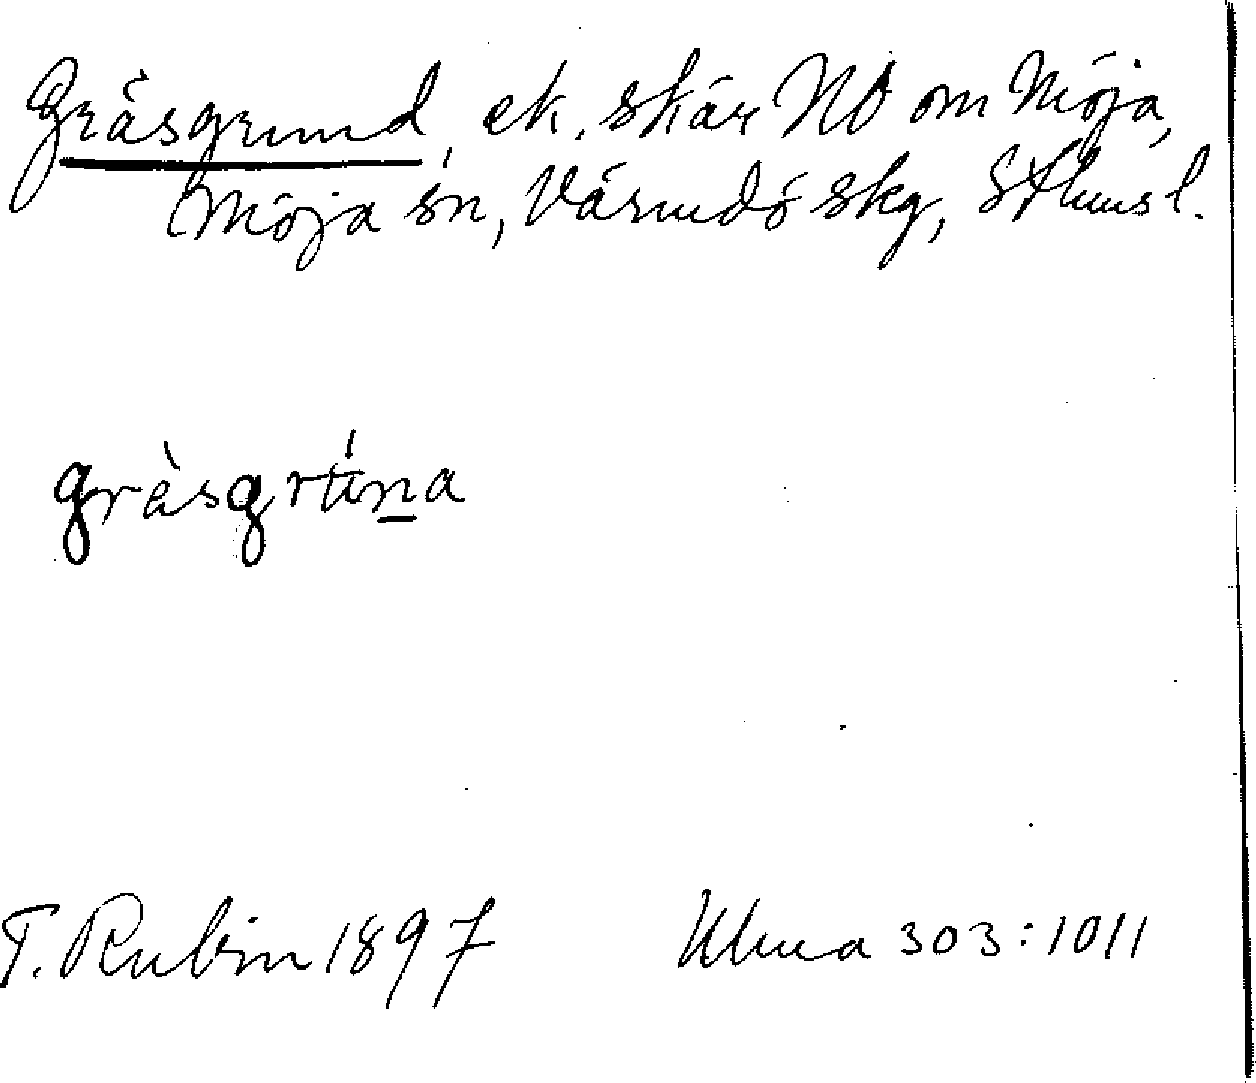 Gräsgrund, ek. skär NO om Möja,
Möja sn, Värmdö skg, Sthms l.
gràsgrúna
T. Rubin 1897 Ulma 303:1011